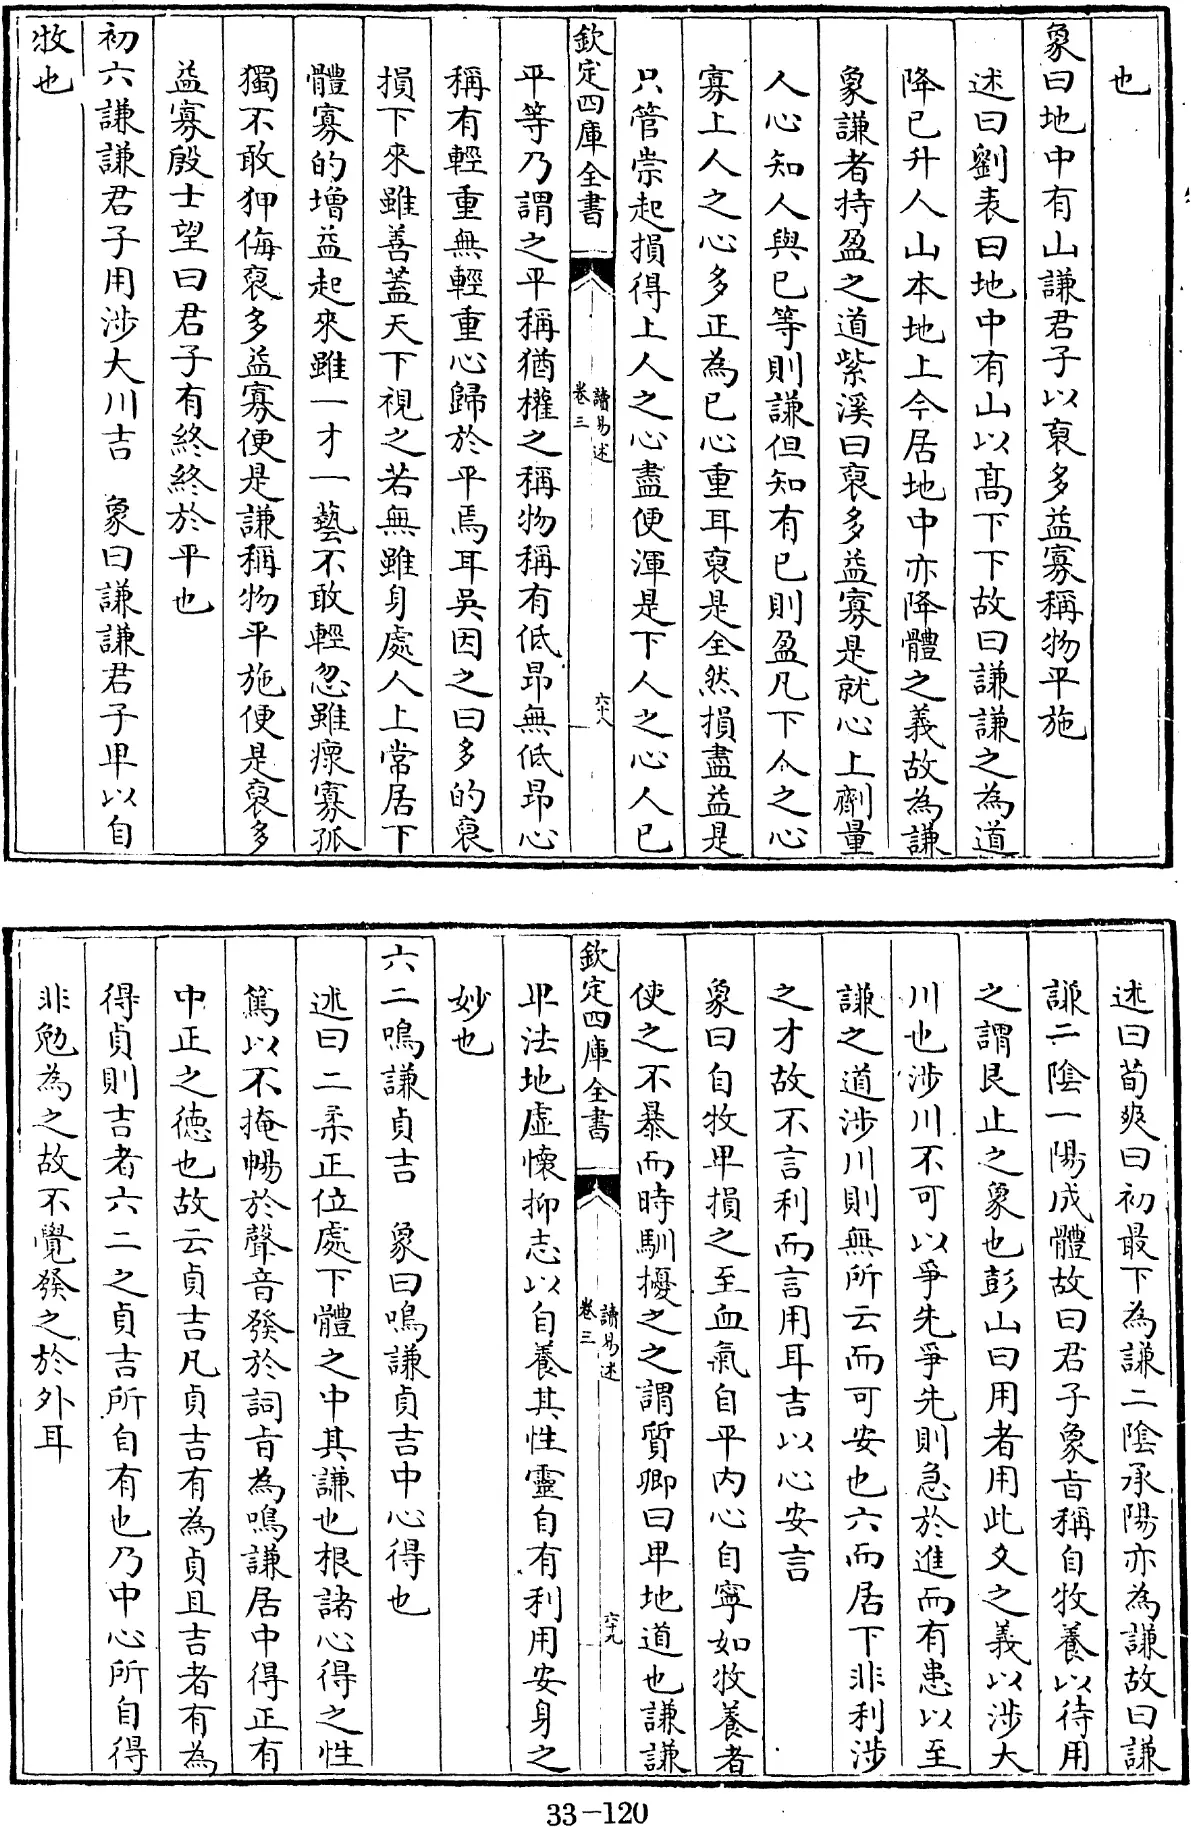 也
象曰地中有山謙君子以裒多益寡稱物平施
述曰劉表曰地中有山以髙下下故曰謙謙之為道
降已升人山本地上今居地中亦降體之義故為謙
象謙者持盈之道紫溪曰裒多益寡是就心上劑量
人心知人與已等則謙但知有已則盈凡下人之心
寡上人之心多正為已心重耳裒是全然損盡益是
只管崇起損得上人之心盡便渾是下人之心人已
欽定四庫全書
讀易述
卷三
六十八
平等乃謂之平稱猶權之稱物稱有低昂無低昂心
稱有輕重無輕重心歸於平焉耳吳因之曰多的裒
損下來雖善蓋天下視之若無雖身處人上常居下
體寡的增益起來雖一才一藝不敢輕忽雖瘝寡孤
獨不敢狎侮裒多益寡便是謙稱物平施便是裒多
益寡殷士望曰君子有終終於平也
初六謙謙君子用涉大川吉　象曰謙謙君子卑以自
牧也
述曰荀爽曰初最下為謙二陰承陽亦為謙故曰謙
謙二陰一陽成體故曰君子象㫖稱自牧養以待用
之謂艮止之象也彭山曰用者用此爻之義以涉大
川也涉川不可以爭先爭先則急於進而有患以至
謙之道涉川則無所云而可安也六而居下非利涉
之才故不言利而言用耳吉以心安言
象曰自牧卑損之至血氣自平内心自寧如牧養者
使之不暴而時馴擾之之謂質卿曰卑地道也謙謙
欽定四庫全書
讀易述
卷三
六十九
卑法地虛懷抑志以自養其性靈自有利用安身之
妙也
六二鳴謙貞吉　象曰鳴謙貞吉中心得也
述曰二柔正位處下體之中其謙也根諸心得之性
篤以不掩暢於聲音發於詞㫖為鳴謙居中得正有
中正之德也故云貞吉凡貞吉有為貞且吉者有為
得貞則吉者六二之貞吉所自有也乃中心所自得
非勉為之故不覺發之於外耳
33-120